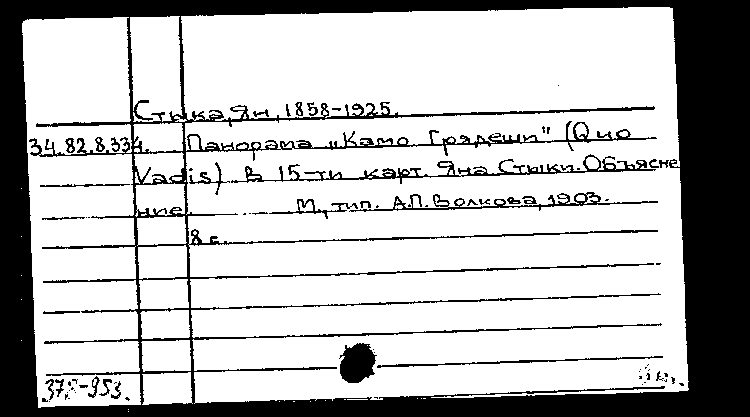 Стыка, Ян, 1858-1925.
34.82.8.334. Панорама „Камо Грядеши" (Quo
Vadis) в 15-ти карт. Яна Стыки. Объясне
ние. М., тип. А.П. Волкова, 1903.
8 с.
378-953.